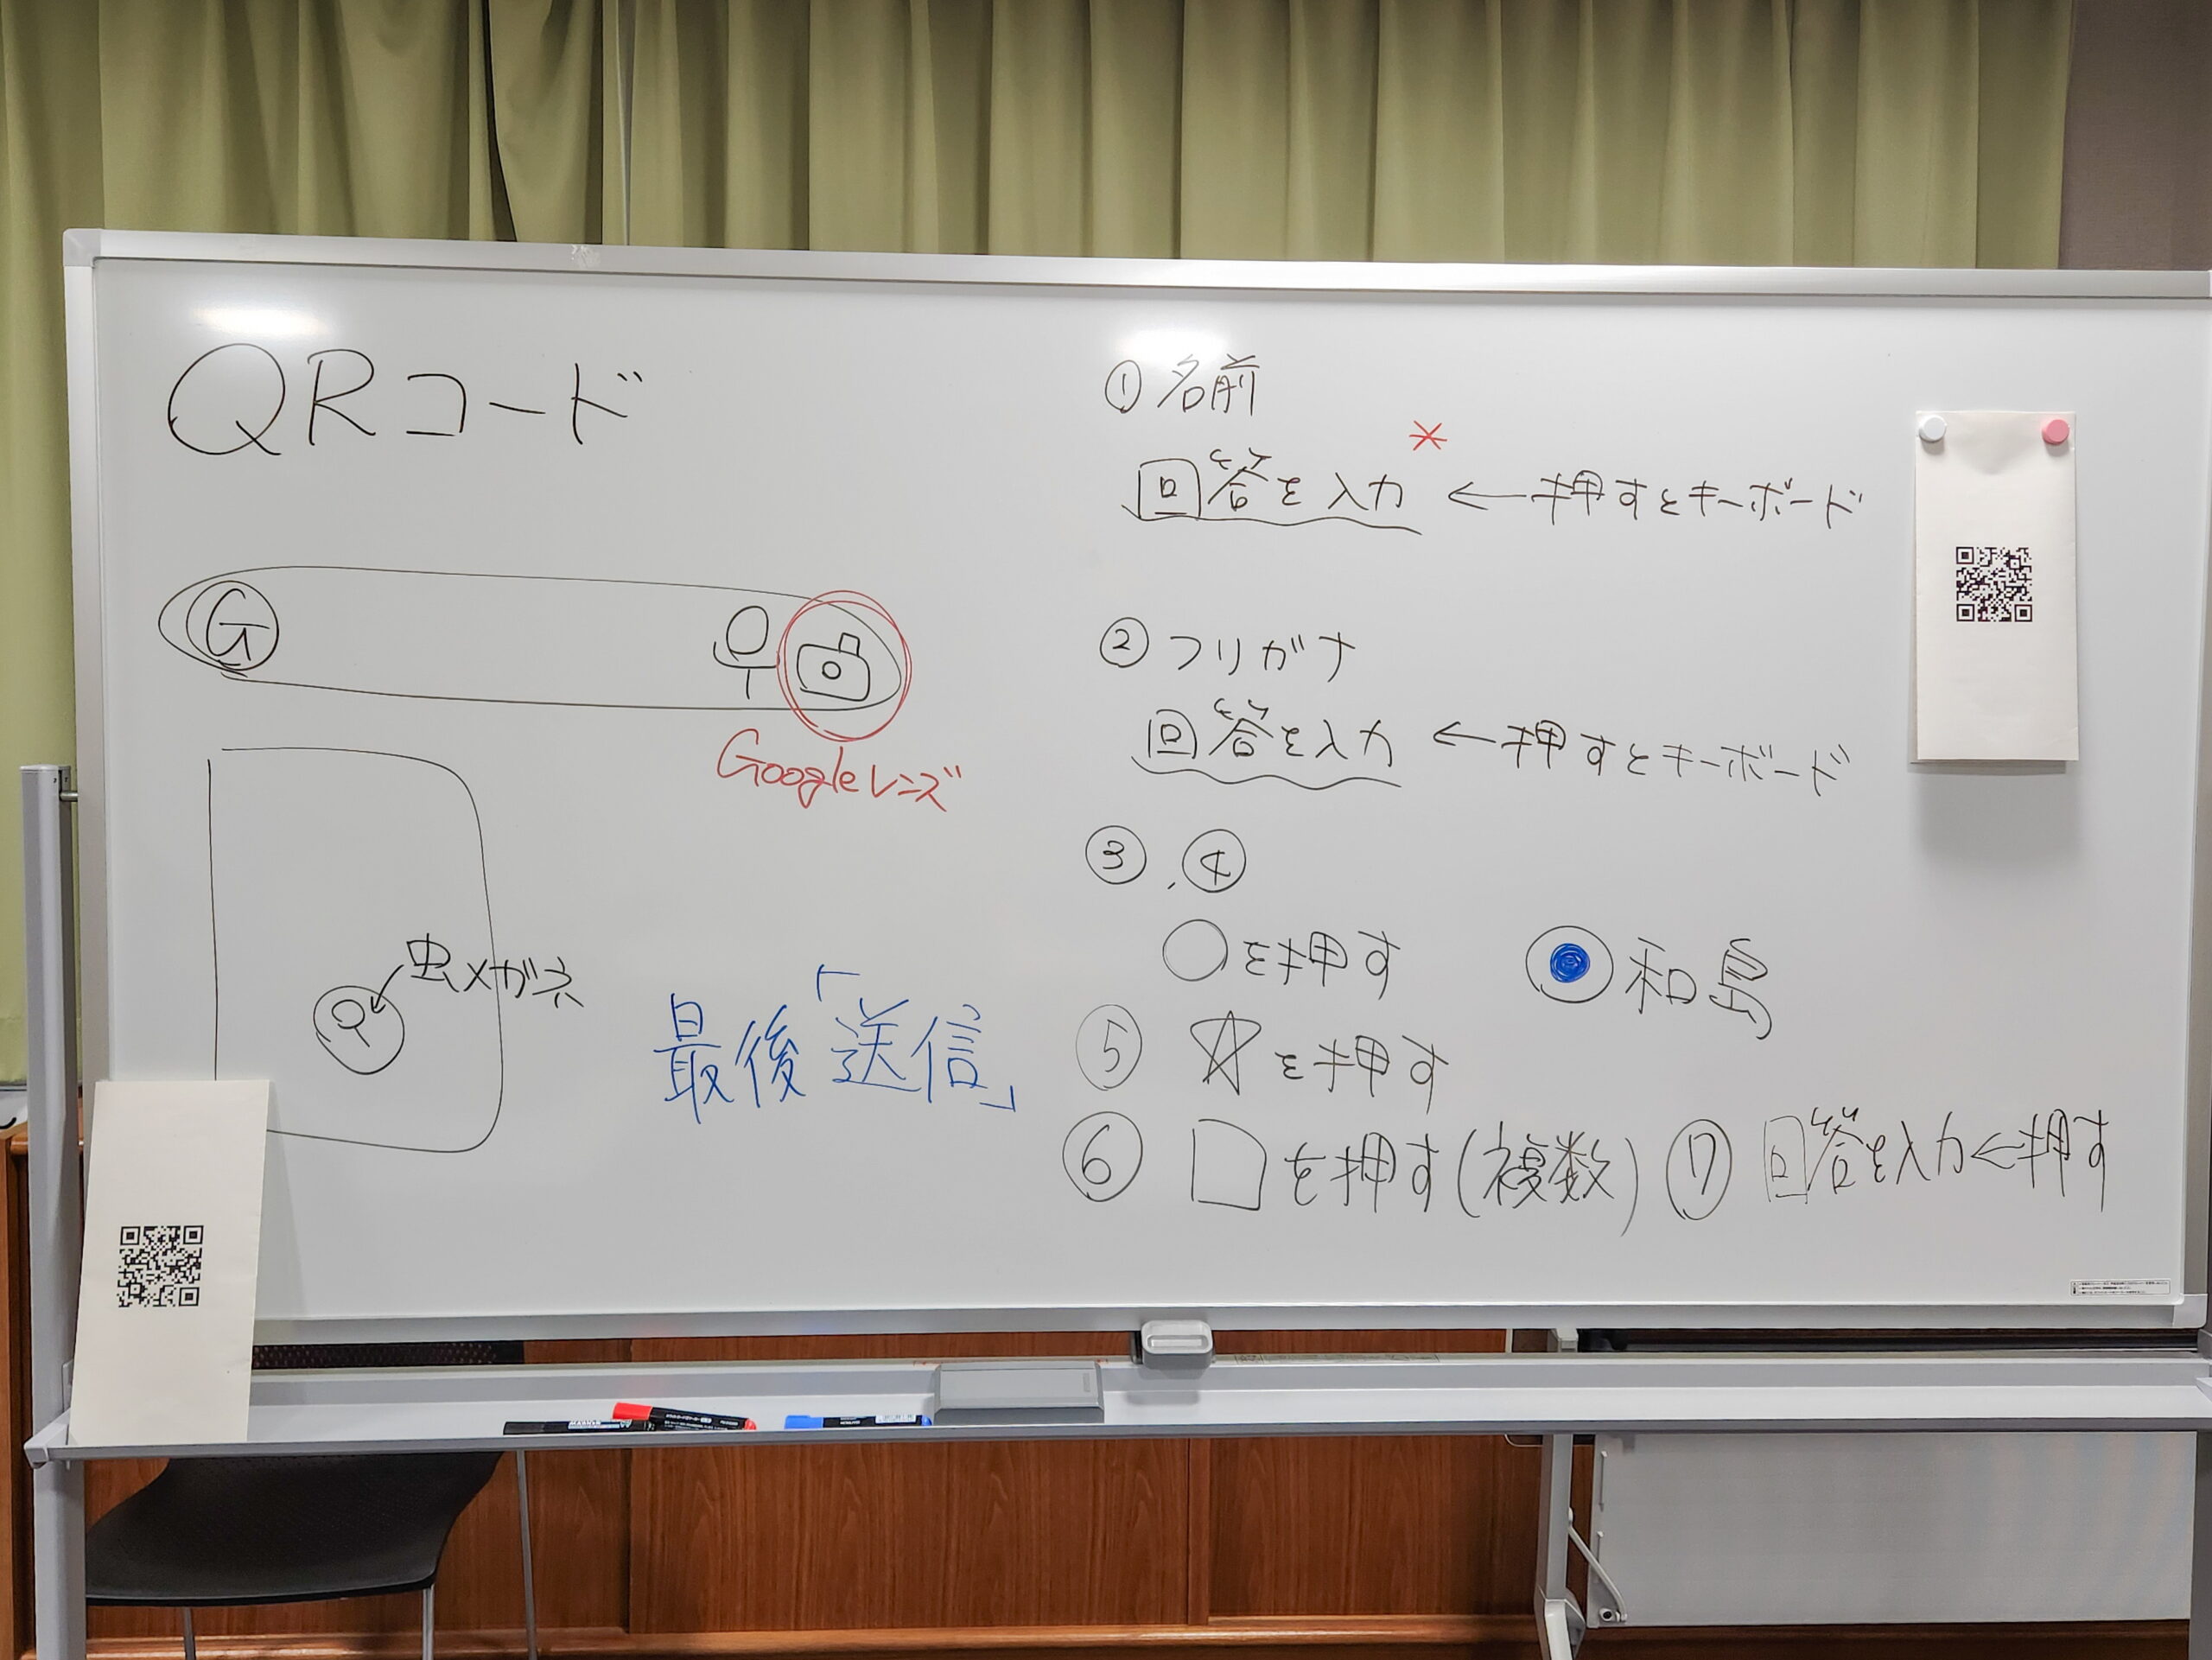 QRコード
G
Googleレンズ
虫メガネ
最後「送信」
① 名前
回答を入力 * ←押すとキーボード
② フリガナ
回答を入力 ←押すとキーボード
③, ④
○を押す ◉和島
⑤ ☆を押す
⑥ □を押す(複数) ⑦ 回答を入力←押す